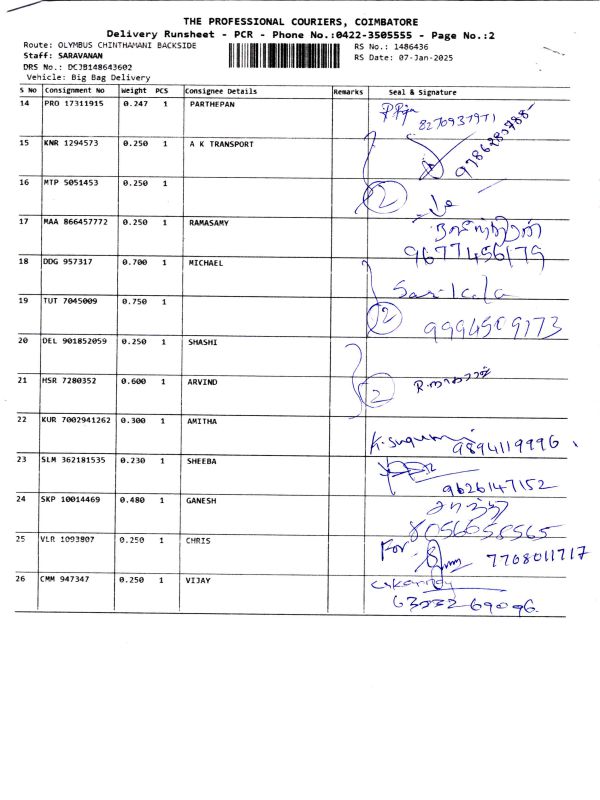 THE PROFESSIONAL COURIERS, COIMBATORE
Delivery Runsheet - PCR - Phone No.:0422-3505555 - Page No.:2
Route: OLYMBUS CHINTHAMANI BACKSIDE RS No.: 1486436
Staff: SARAVANAN RS Date: 07-Jan-2025
DRS No.: DCJB148643602
Vehicle: Big Bag Delivery
S No Consignment No Weight PCS Consignee Details Remarks Seal & Signature
14 PRO 17311915 0.247 1 PARTHEPAN
8270937971
15 KNR 1294573 0.250 1 A K TRANSPORT
16 MTP 5051453 0.250 1
2
17 MAA 866457772 0.250 1 RAMASAMY
9677456175
18 DDG 957317 0.700 1 MICHAEL
Sasikala
19 TUT 7045009 0.750 1
2 9994509173
20 DEL 901852059 0.250 1 SHASHI
21 HSR 7280352 0.600 1 ARVIND
2
22 KUR 7002941262 0.300 1 AMITHA
9894119996
23 SLM 362181535 0.230 1 SHEEBA
9626147152
24 SKP 10014469 0.480 1 GANESH
8056558565
25 VLR 1093807 0.250 1 CHRIS
For 7708011717
26 CMM 947347 0.250 1 VIJAY